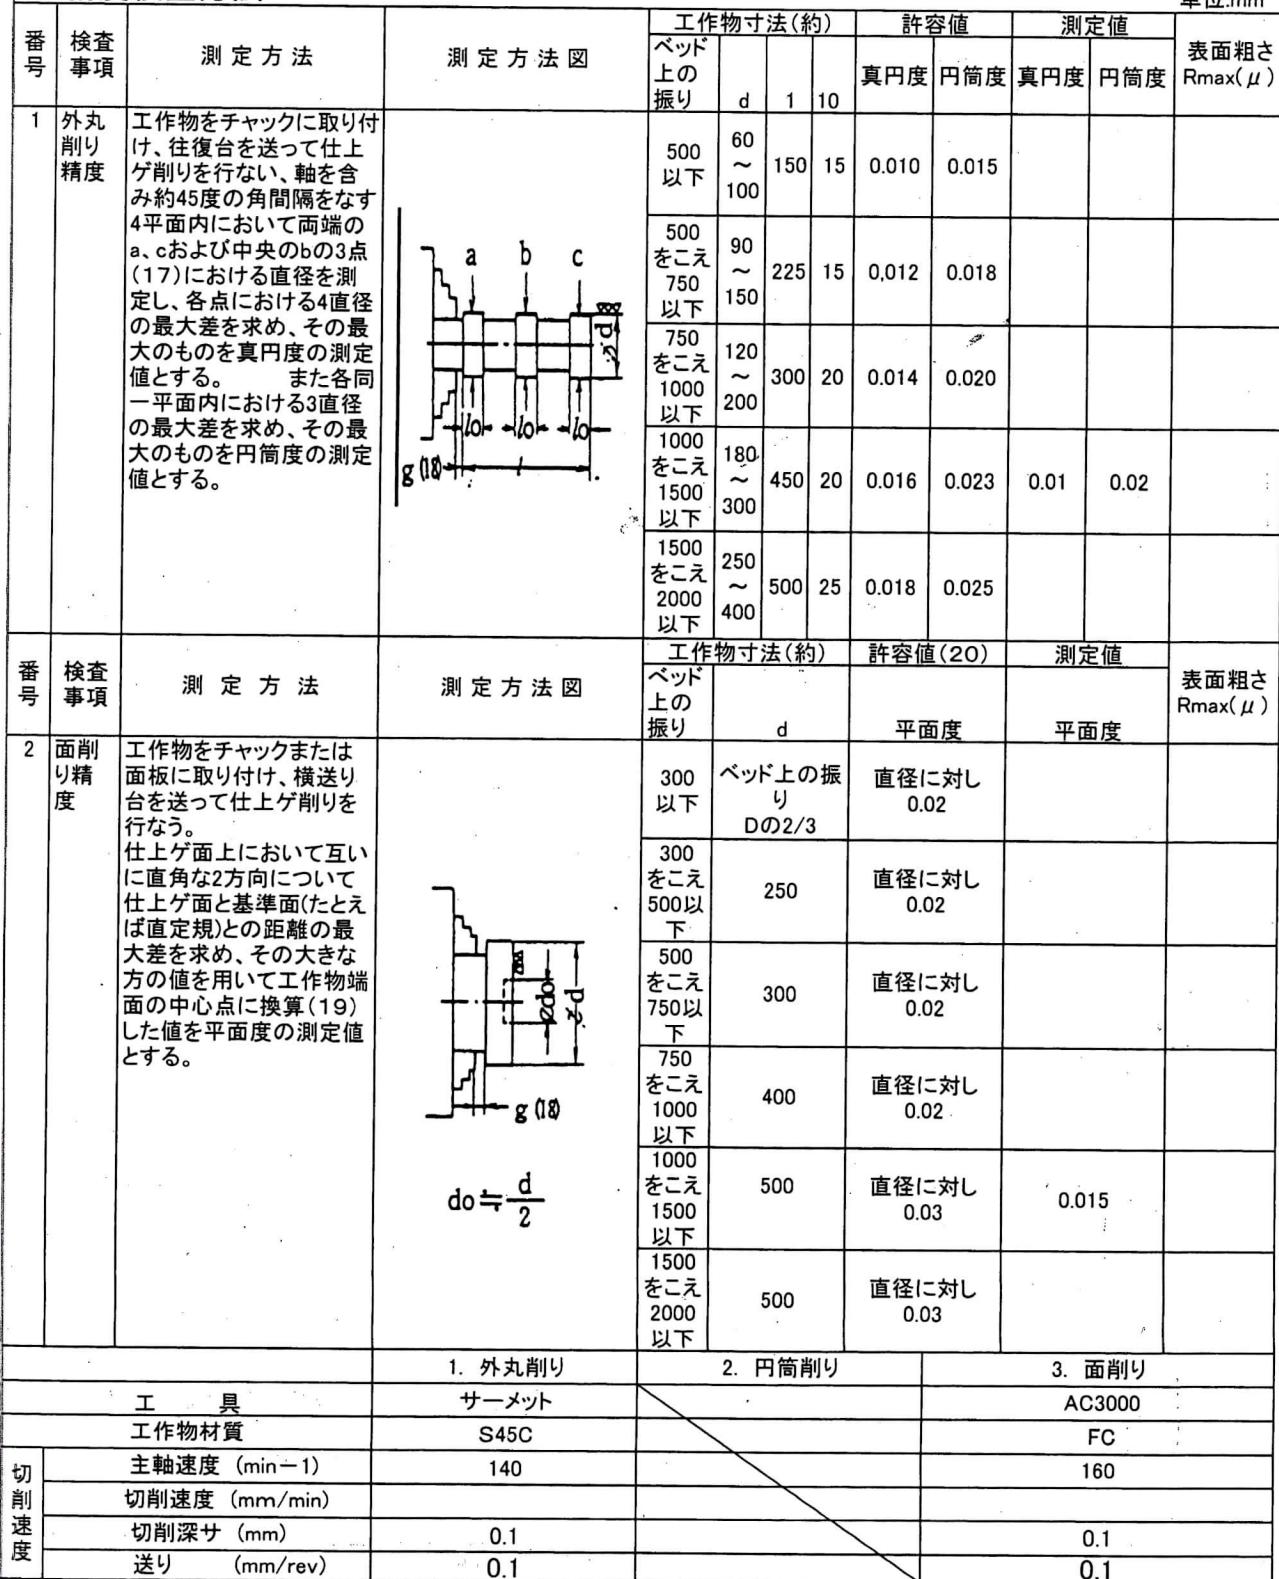 単位:mm
番号 検査事項 測定方法 測定方法図 工作物寸法(約) 許容値 測定値 表面粗さ Rmax(μ)
ベッド上の振り d 1 10 真円度 円筒度 真円度 円筒度
1 外丸削り精度
工作物をチャックに取り付
け、往復台を送って仕上
ゲ削りを行ない、軸を含
み約45度の角間隔をなす
4平面内において両端の
a、cおよび中央のbの3点
(17)における直径を測
定し、各点における4直径
の最大差を求め、その最
大のものを真円度の測定
値とする。 また各同
一平面内における3直径
の最大差を求め、その最
大のものを円筒度の測定
値とする。
a b c
ød
lo lo lo
g (18) l
500以下 60～100 150 15 0.010 0.015
500をこえ750以下 90～150 225 15 0,012 0.018
750をこえ1000以下 120～200 300 20 0.014 0.020
1000をこえ1500以下 180～300 450 20 0.016 0.023 0.01 0.02
1500をこえ2000以下 250～400 500 25 0.018 0.025
番号 検査事項 測定方法 測定方法図 工作物寸法(約) 許容値(20) 測定値 表面粗さ Rmax(μ)
ベッド上の振り d 平面度 平面度
2 面削り精度
工作物をチャックまたは
面板に取り付け、横送り
台を送って仕上ゲ削りを
行なう。
仕上ゲ面上において互い
に直角な2方向について
仕上ゲ面と基準面(たとえ
ば直定規)との距離の最
大差を求め、その大きな
方の値を用いて工作物端
面の中心点に換算(19)
した値を平面度の測定値
とする。
ødo ød
g (18)
do≒d/2
300以下 ベッド上の振りDの2/3 直径に対し0.02
300をこえ500以下 250 直径に対し0.02
500をこえ750以下 300 直径に対し0.02
750をこえ1000以下 400 直径に対し0.02
1000をこえ1500以下 500 直径に対し0.03 0.015
1500をこえ2000以下 500 直径に対し0.03
1. 外丸削り 2. 円筒削り 3. 面削り
工 具 サーメット AC3000
工作物材質 S45C FC
切削速度
主軸速度 (min－1) 140 160
切削速度 (mm/min)
切削深サ (mm) 0.1 0.1
送り (mm/rev) 0.1 0.1